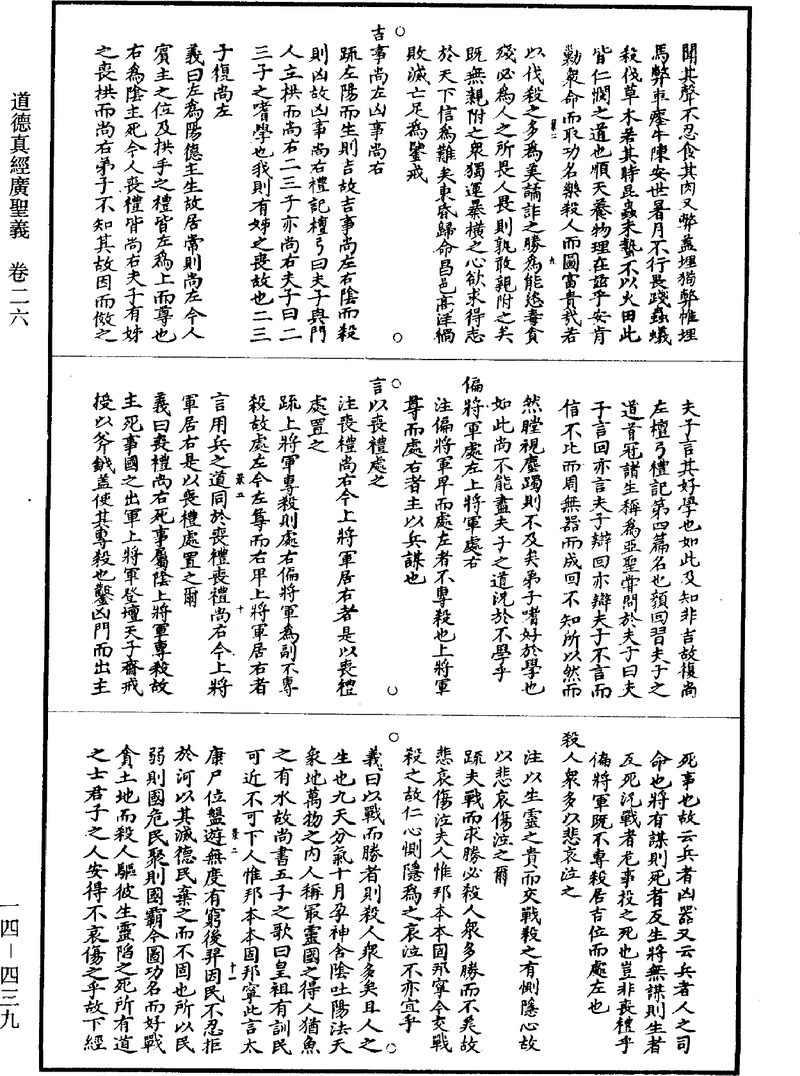 道德真經廣聖義　卷二六
一四—四三九
聞其聲不忍食其肉又弊蓋埋狗弊帷埋
馬弊車瘞牛陳安世暑月不行畏踐蟲蟻
殺伐草木若其時昆蟲未蟄不以火田此
皆仁憫之道也順天養物理在茲乎安肯
勦衆命而取功名樂殺人而圖富貴哉若
以伐殺之多爲美譎詐之勝爲能恣毒貪
殘必爲人之所畏人畏則孰敢親附之矣
既無親附之衆獨運暴橫之心欲求得志
於天下信爲難矣東昏歸命昌邑高洋禍
敗滅亡足爲鑒戒
吉事尚左凶事尚右
疏左陽而生則吉故吉事尚左右陰而殺
則凶故凶事尚右禮記檀弓曰夫子與門
人立拱而尚右二三子亦尚右夫子曰二
三子之嗜學也我則有姊之喪故也二三
子復尚左
義曰左爲陽德主生故居常則尚左今人
賓主之位及拱手之禮皆左爲上而尊也
右爲陰主死今人喪禮皆尚右夫子有姊
之喪拱而尚右弟子不知其故因而倣之
夫子言其好學也如此及知非吉故復尚
左檀弓禮記第四篇名也顏回習夫子之
道首冠諸生稱爲亞聖嘗問於夫子曰夫
子言回亦言夫子辯回亦辯夫子不言而
信不比而周無器而成回不知所以然而
然瞠視塵躅則不及矣弟子嗜好於學也
如此尚不能盡夫子之道況於不學乎
偏將軍處左上將軍處右
注偏將軍卑而處左者不專殺也上將軍
尊而處右者主以兵謀也
言以喪禮處之
注喪禮尚右今上將軍居右者是以喪禮
處置之
疏上將軍專殺則處右偏將軍爲副不專
殺故處左今左尊而右卑上將軍居右者
言用兵之道同於喪禮喪禮尚右今上將
軍居右是以喪禮處置之爾
義曰喪禮尚右死事屬陰上將軍專殺故
主死事國之出軍上將軍登壇天子齋戒
授以斧鉞蓋使其專殺也鑿凶門而出主
死事也故云兵者凶器又云兵者人之司
命也將有謀則死者反生將無謀則生者
反死況戰者危事投之死也豈非喪禮乎
偏將軍既不專殺居吉位而處左也
殺人衆多以悲哀泣之
注以生靈之貴而交戰殺之有惻隱心故
以悲哀傷泣之爾
疏夫戰而求勝必殺人衆多勝而不美故
悲哀傷泣夫人惟邦本本固邦寧今交戰
殺之故仁心惻隱爲之哀泣不亦宜乎
義曰以戰而勝者則殺人衆多矣且人之
生也九天分氣十月孕神含陰吐陽法天
象地萬物之內人稱最靈國之得人猶魚
之有水故尚書五子之歌曰皇祖有訓民
可近不可下人惟邦本本固邦寧此言太
康尸位盤遊無度有窮后羿因民不忍拒
於河以其滅德民棄之而不固也所以民
弱則國危民聚則國霸今圖功名而好戰
貪土地而殺人驅彼生靈陷之死所有道
之士君子之人安得不哀傷之乎故下經